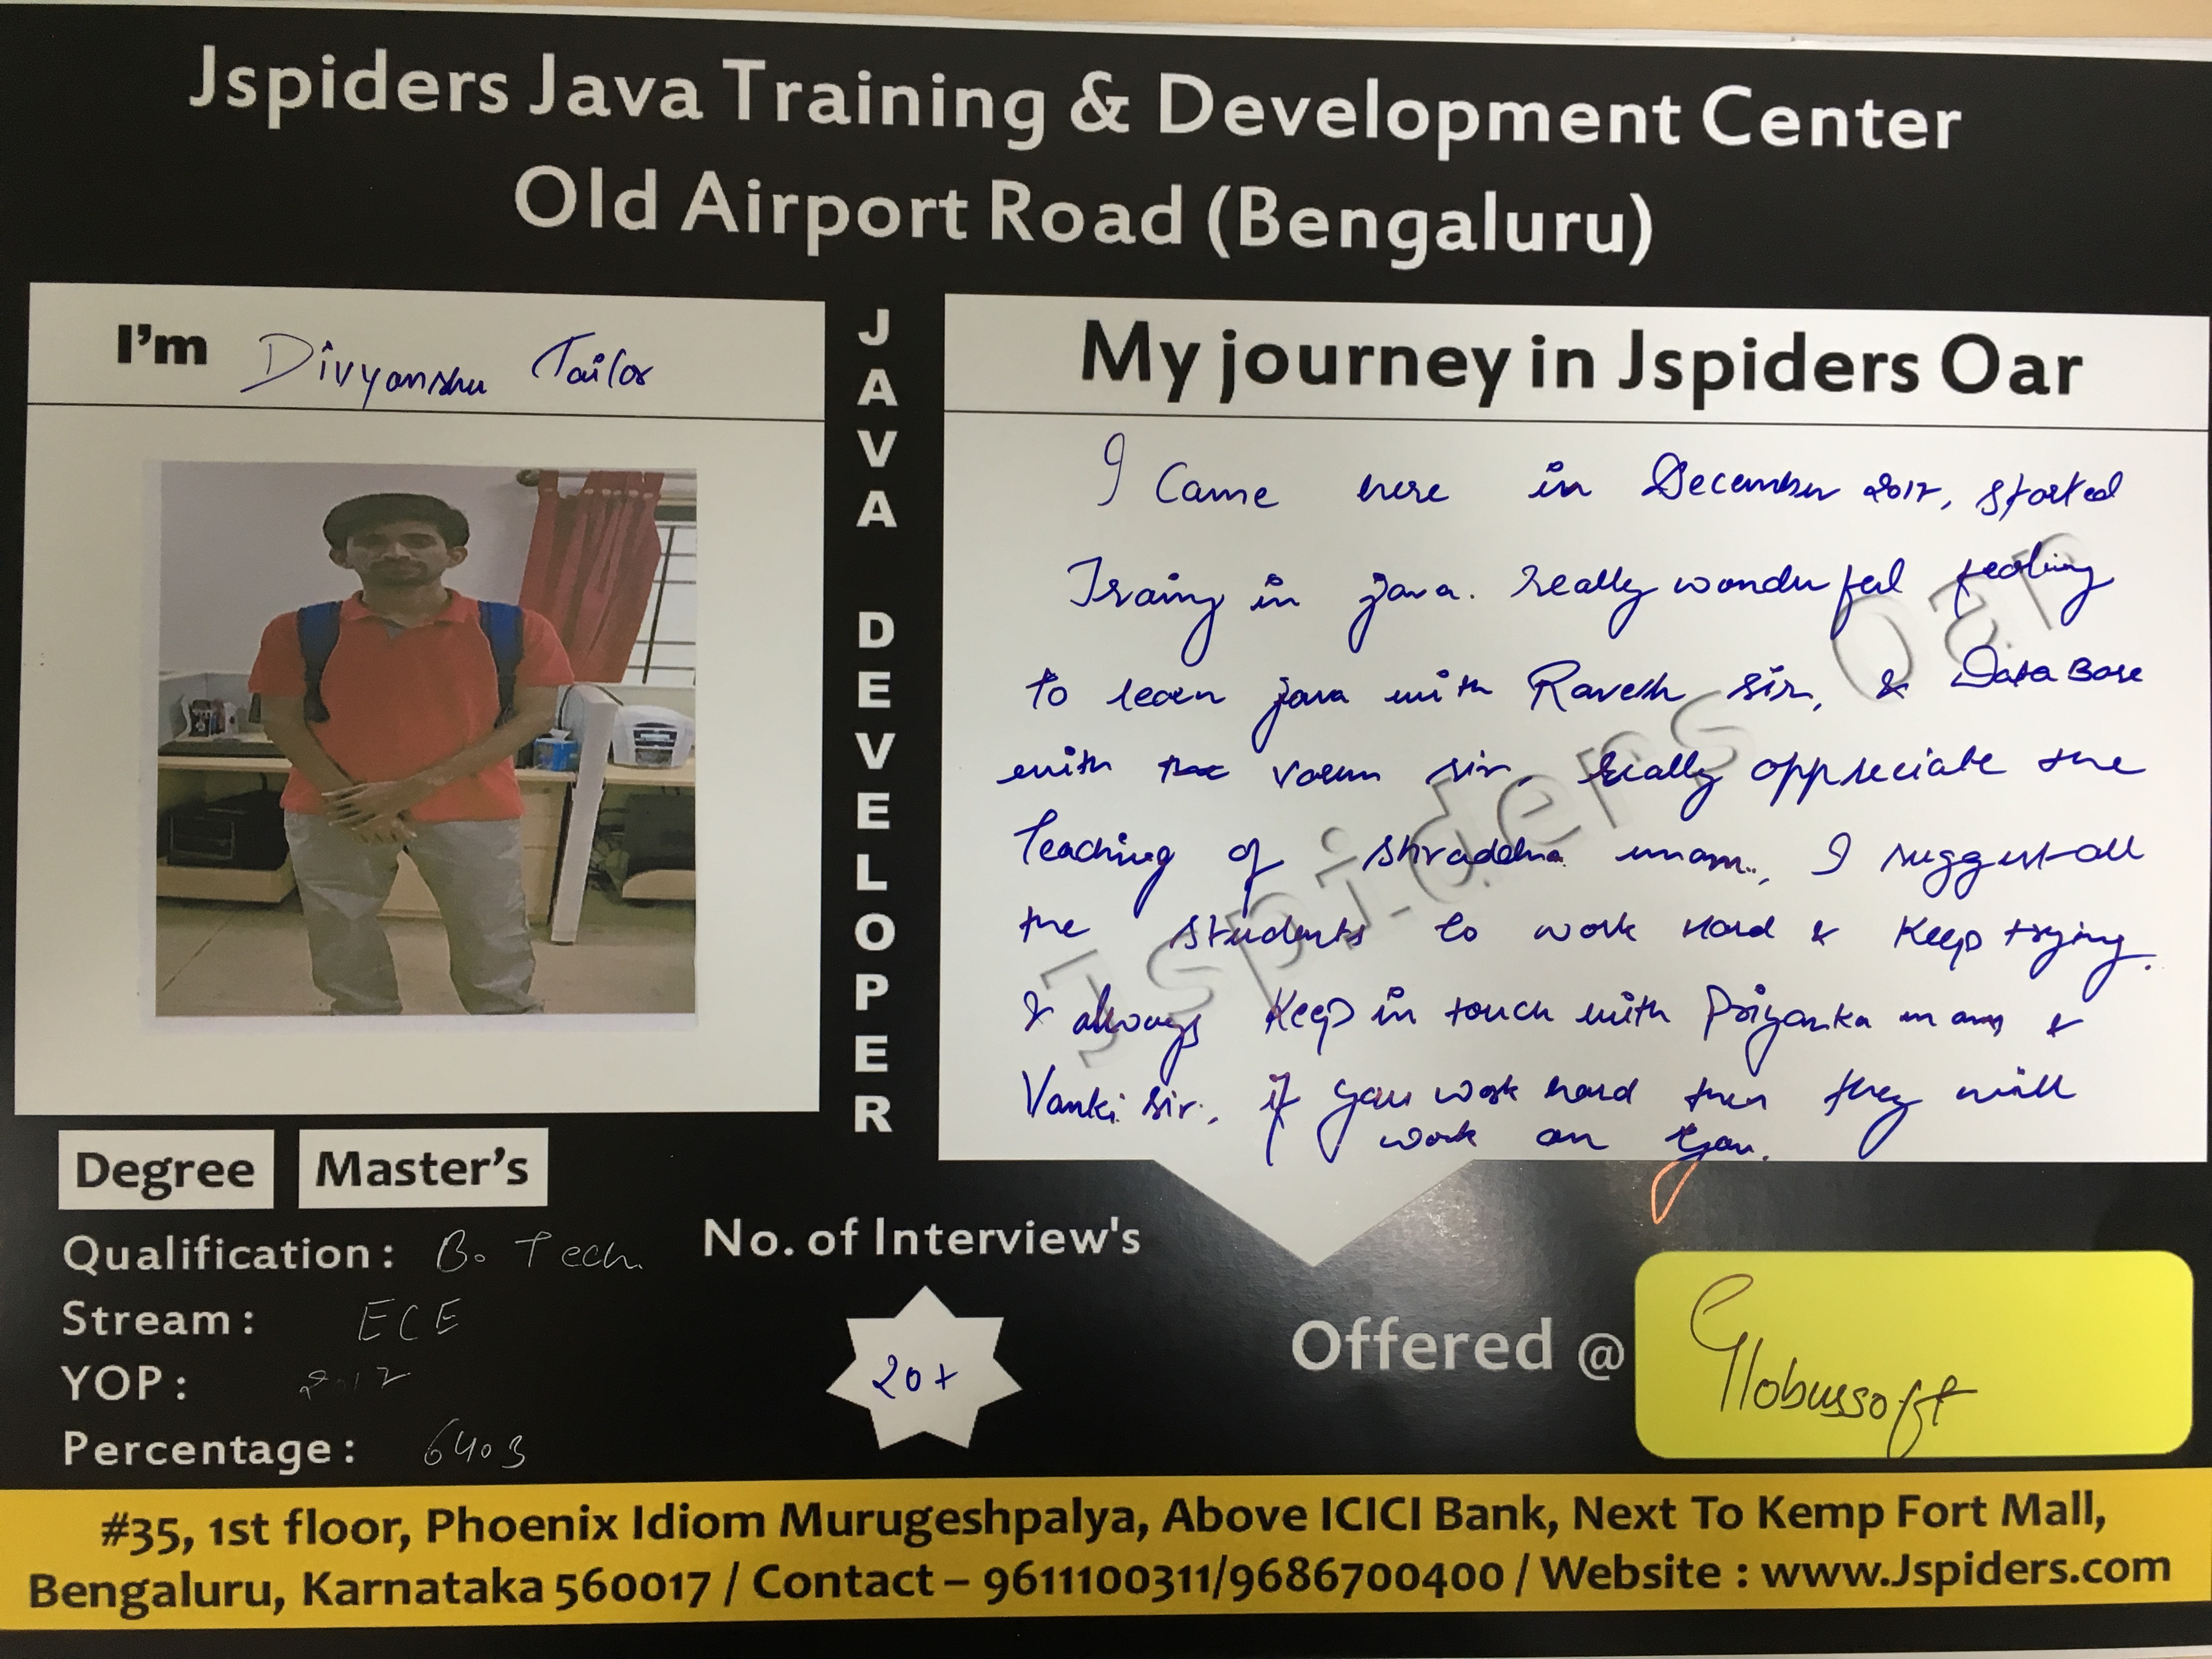 Jspiders Java Training & Development Center
Old Airport Road (Bengaluru)
I'm Divyanshu Tailor
JAVA DEVELOPER
My journey in Jspiders Oar
I Came here in December 2017, started
Traing in java. really wonderful feeling
to learn java with Ravesh sir, & DataBase
with varun sir, really appreciate the
Teaching of Shraddha mam., I suggest all
the students to work Hard & Keep trying.
& always Keep in touch with Priyanka mam &
Vanki sir., if you work hard then they will
work on you.
Jspiders Oar
Degree Master's
Qualification : B. Tech.
Stream : ECE
YOP : 2017
Percentage : 64.3
No. of Interview's
20+
Offered @ Globussoft
#35, 1st floor, Phoenix Idiom Murugeshpalya, Above ICICI Bank, Next To Kemp Fort Mall,
Bengaluru, Karnataka 560017 / Contact – 9611100311/9686700400 / Website : www.Jspiders.com